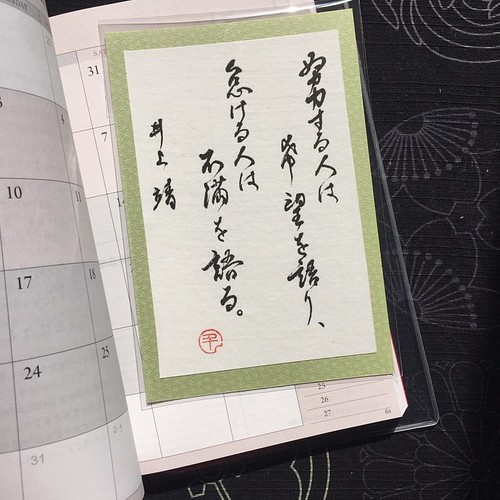 努力する人は
希望を語り、
怠ける人は
不満を語る。
井上靖
31
7
10
17
18
24
25
31
25
26
27